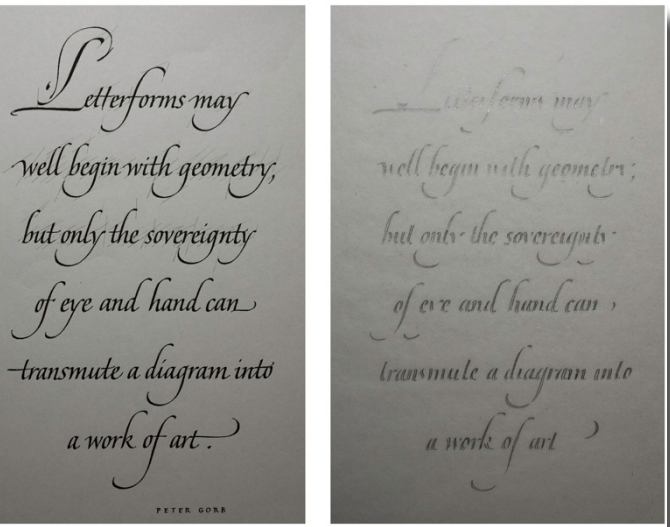 Letterforms may
well begin with geometry,
but only the sovereignty
of eye and hand can
transmute a diagram into
a work of art.
PETER GORB
Letterforms may
well begin with geometry;
but only the sovereignty
of eye and hand can
transmute a diagram into
a work of art